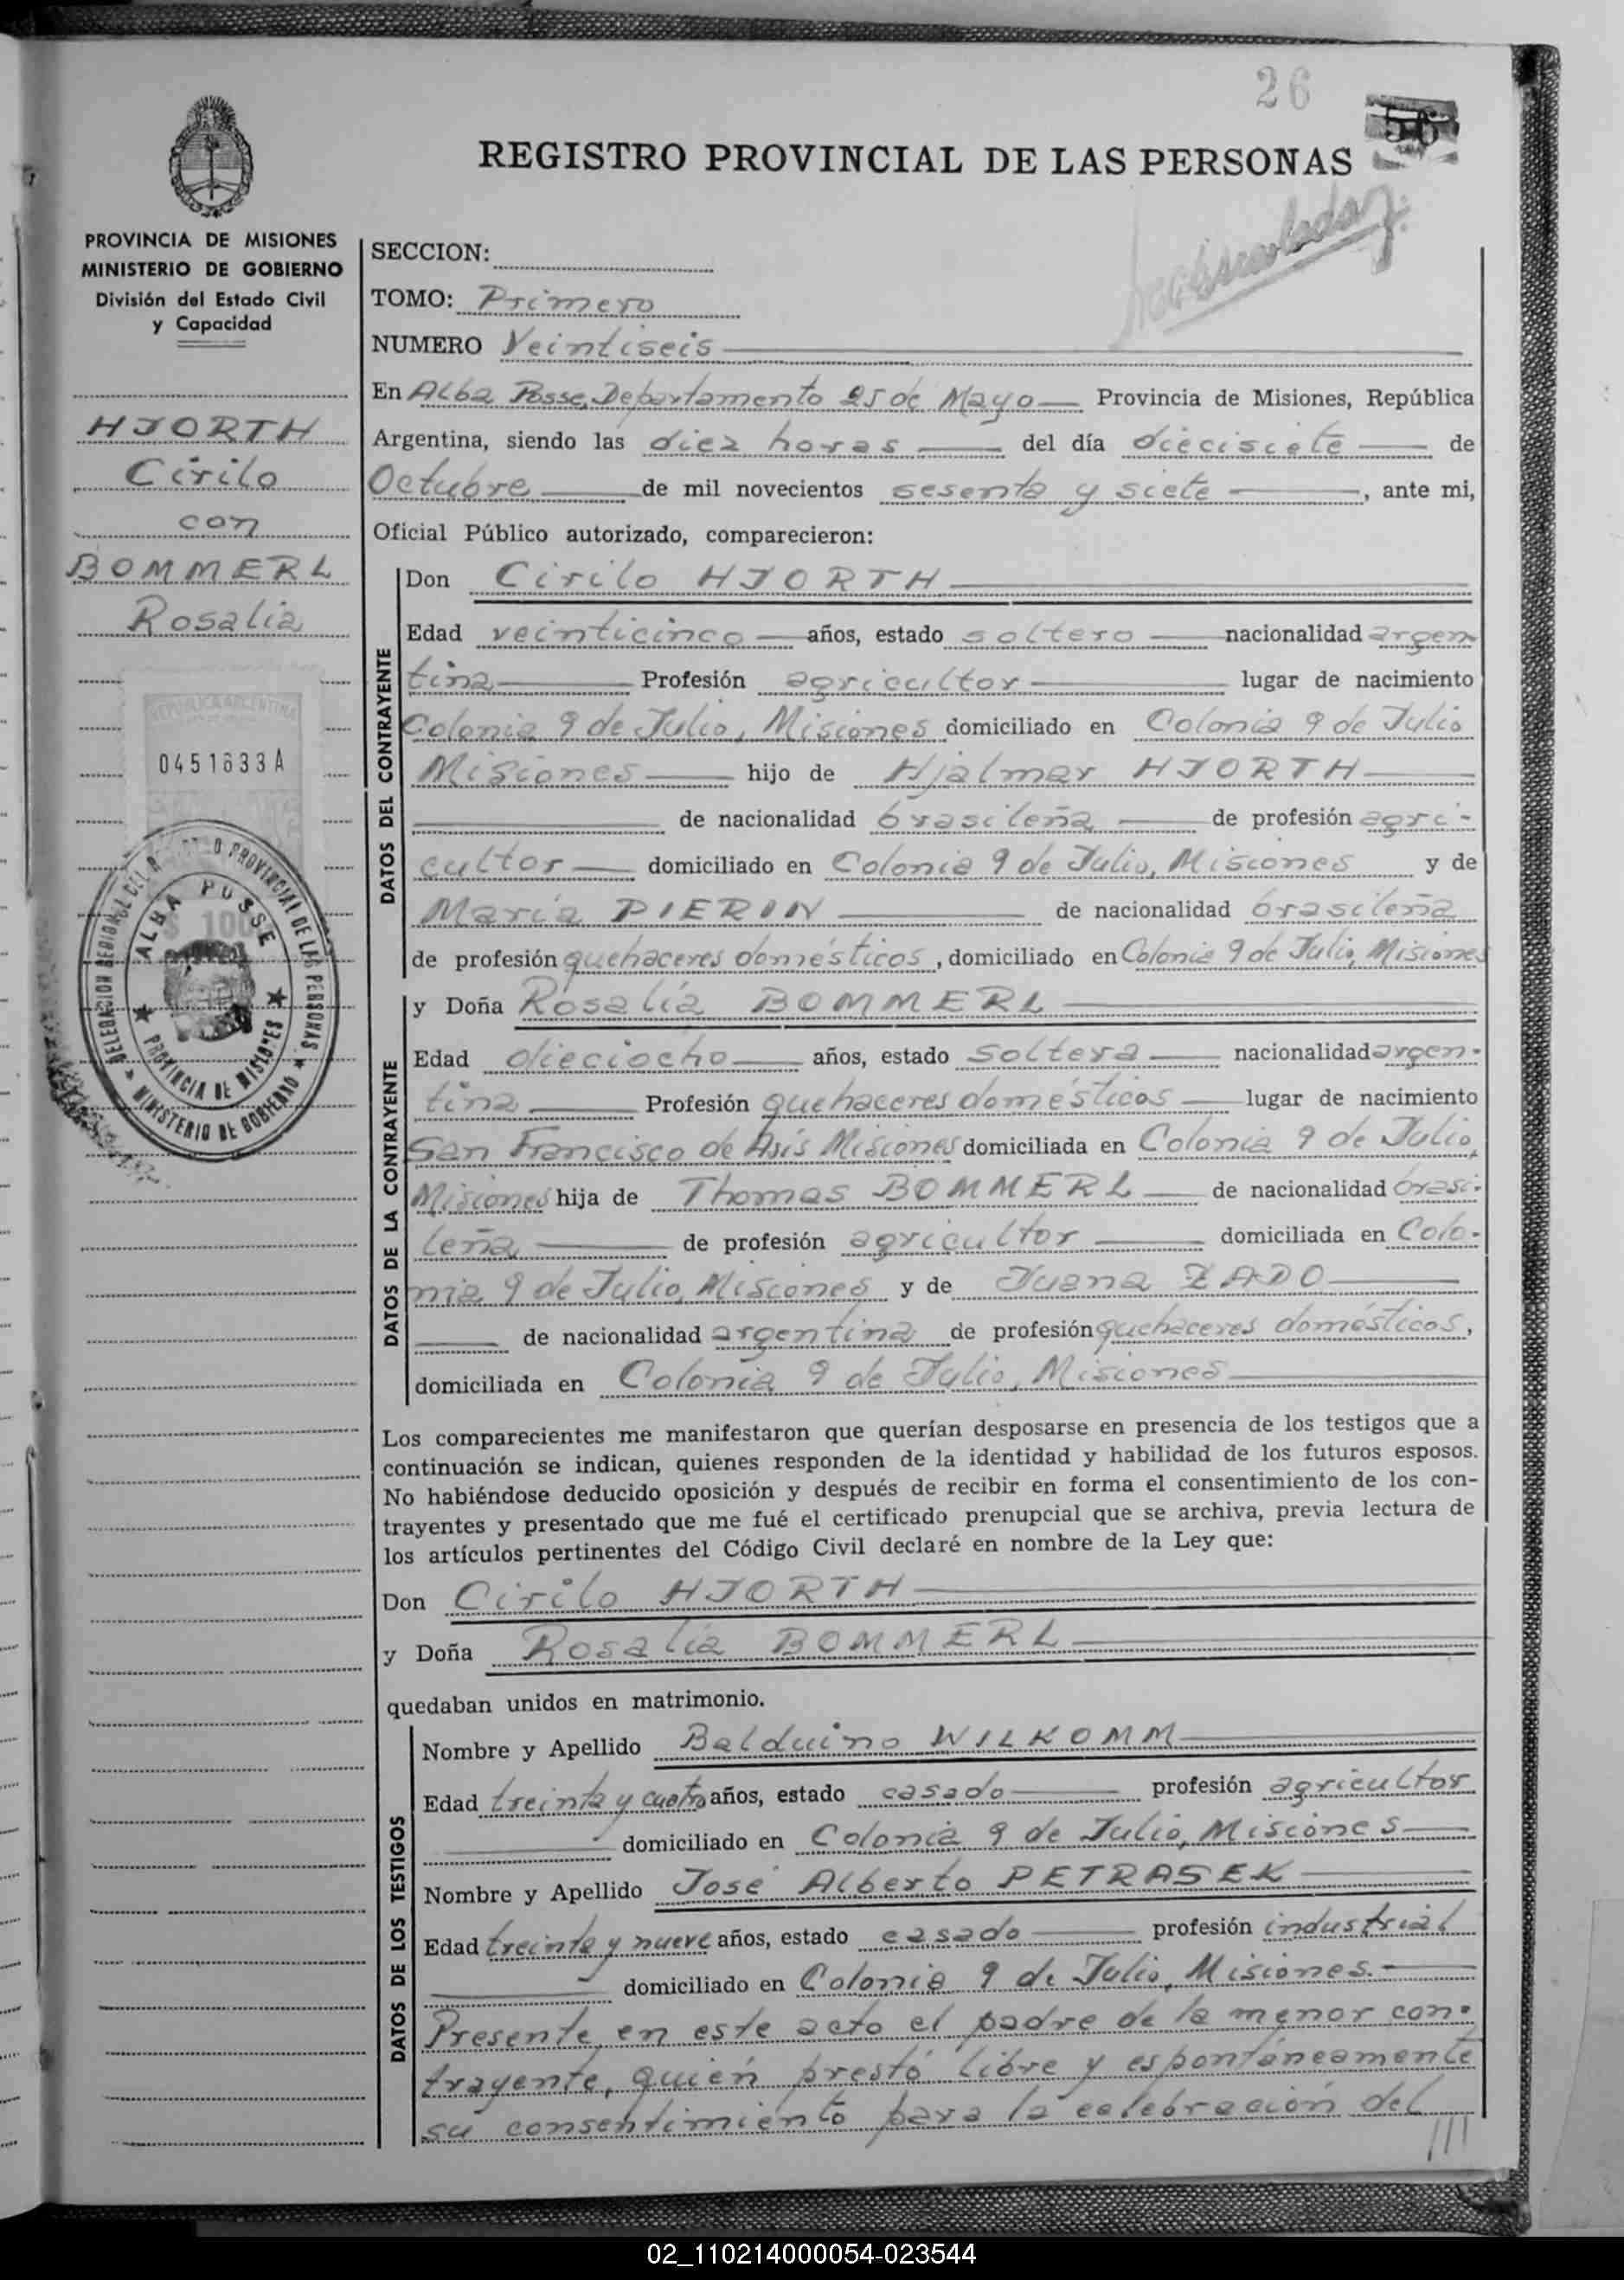 26
56
REGISTRO PROVINCIAL DE LAS PERSONAS
PROVINCIA DE MISIONES
MINISTERIO DE GOBIERNO
División del Estado Civil
y Capacidad
HJORTH
Cirilo
con
BOMMERL
Rosalia
REPUBLICA ARGENTINA
0451633A
$ 100
PROVINCIAL DE LAS PERSONAS
ALBA POSSE
PROVINCIA DE MISIONES
MINISTERIO DE GOBIERNO
SECCION:
TOMO: Primero
NUMERO Veintiseis
En Alba Posse, Departamento 25 de Mayo Provincia de Misiones, República
Argentina, siendo las diez horas del día diecisiete de
Octubre de mil novecientos sesenta y siete, ante mi,
Oficial Público autorizado, comparecieron:
DATOS DEL CONTRAYENTE
Don Cirilo HJORTH
Edad veinticinco años, estado soltero nacionalidad argen-
tina Profesión agricultor lugar de nacimiento
Colonia 9 de Julio, Misiones domiciliado en Colonia 9 de Julio
Misiones hijo de Hjalmar HJORTH
de nacionalidad brasileña de profesión agri-
cultor domiciliado en Colonia 9 de Julio, Misiones y de
María PIERIN de nacionalidad brasileña
de profesión quehaceres domésticos, domiciliado en Colonia 9 de Julio, Misiones
DATOS DE LA CONTRAYENTE
y Doña Rosalía BOMMERL
Edad dieciocho años, estado soltera nacionalidad argen-
tina Profesión quehaceres domésticos lugar de nacimiento
San Francisco de Asís Misiones domiciliada en Colonia 9 de Julio,
Misiones hija de Thomas BOMMERL de nacionalidad brasi-
leña de profesión agricultor domiciliada en Colo-
nia 9 de Julio, Misiones y de Juana ZADO
de nacionalidad argentina de profesión quehaceres domésticos,
domiciliada en Colonia 9 de Julio, Misiones
Los comparecientes me manifestaron que querían desposarse en presencia de los testigos que a
continuación se indican, quienes responden de la identidad y habilidad de los futuros esposos.
No habiéndose deducido oposición y después de recibir en forma el consentimiento de los con-
trayentes y presentado que me fué el certificado prenupcial que se archiva, previa lectura de
los artículos pertinentes del Código Civil declaré en nombre de la Ley que:
Don Cirilo HJORTH
y Doña Rosalía BOMMERL
quedaban unidos en matrimonio.
DATOS DE LOS TESTIGOS
Nombre y Apellido Balduino WILKOMM
Edad treinta y cuatro años, estado casado profesión agricultor
domiciliado en Colonia 9 de Julio, Misiones
Nombre y Apellido José Alberto PETRASEK
Edad treinta y nueve años, estado casado profesión industrial
domiciliado en Colonia 9 de Julio, Misiones.-
Presente en este acto el padre de la menor con-
trayente, quién prestó libre y espontáneamente
su consentimiento para la celebración del
///
02_110214000054-023544